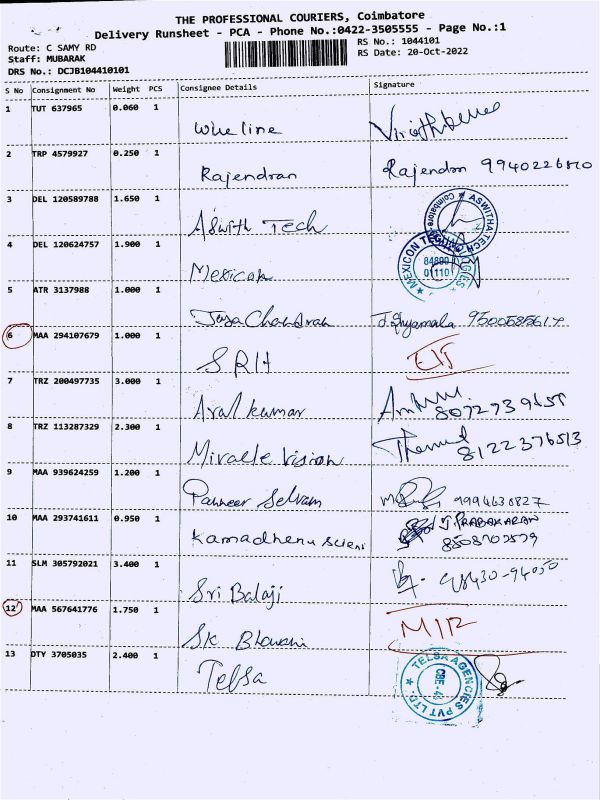 THE PROFESSIONAL COURIERS, Coimbatore
Delivery Runsheet - PCA - Phone No.:0422-3505555 - Page No.:1
Route: C SAMY RD
RS No.: 1044101
Staff: MUBARAK
RS Date: 20-Oct-2022
DRS No.: DCJB104410101
S No Consignment No Weight PCS Consignee Details Signature
1 TUT 637965 0.060 1
Wire line
2 TRP 4579927 0.250 1
Rajendran Rajendran 9940226810
3 DEL 120589788 1.650 1
Aswith Tech ASWITHA TECH Coimbatore
4 DEL 120624757 1.900 1
Mexican MEXICON 84890 01110
5 ATR 3137988 1.000 1
Jaya Chandran J. Shyamala 9500585614
6 MAA 294107679 1.000 1
SRH
7 TRZ 200497735 3.000 1
Aral kumar
8 TRZ 113287329 2.300 1
Miracle Vision 8122376513
9 MAA 939624259 1.200 1
Panneer Selvam 9994630827
10 MAA 293741611 0.950 1
Kamadhenu Scieni J. PRABAKARAN
11 SLM 305792021 3.400 1
Sri Balaji 98430-94050
12 MAA 567641776 1.750 1
SK Bhavani MIR
13 DTY 3705035 2.400 1
Telsa TELSA AGENCIES PVT LTD.